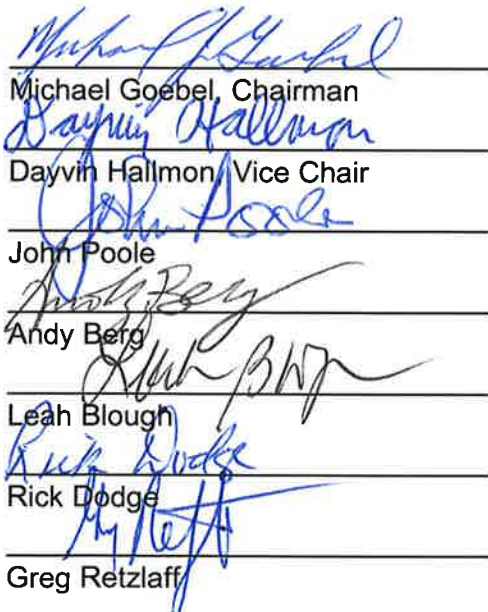 Michael J. Goebel
Michael Goebel, Chairman
Dayvin Hallmon
Dayvin Hallmon, Vice Chair
John Poole
John Poole
Andy Berg
Andy Berg
Leah Blough
Rick Dodge
Rick Dodge
Greg Retzlaff